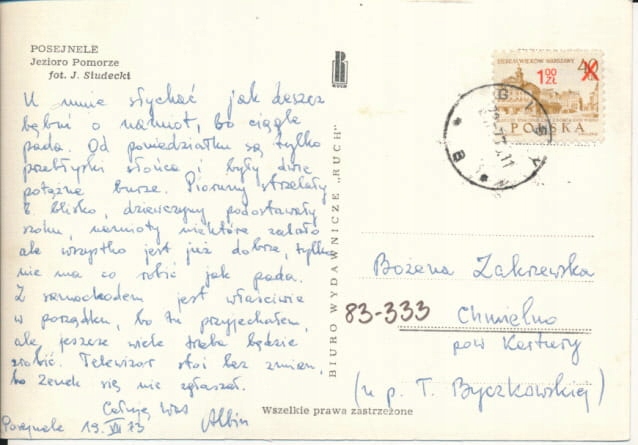 POSEJNELE
Jezioro Pomorze
fot. J. Siudecki
U mnie słychać jak deszcz
bębni o namiot, bo ciągle
pada. Od poniedziałku są tylko
przebłyski słońca i były dwie
potężne burze. Pioruny strzelały
b. blisko, dziewczyny podostawały
szoku, namioty niektóre zalało
ale wszystko jest już dobrze, tylko
nie ma co robić jak pada.
Z samochodem jest właściwie
w porządku, bo tu przyjechałem,
ale jeszcze wiele trzeba będzie
zrobić. Telewizor stoi bez zmian,
bo Zenek się nie zgłaszał.
Całuję Was
Albin
Posejnele 19.VII 73
RUCH
BIURO WYDAWNICZE „RUCH"
Wszelkie prawa zastrzeżone
SIEDEM WIEKÓW WARSZAWY
40
1,00
ZŁ
POLSKA
Bożena Zakrzewska
83-333
Chmielno
pow Kartuzy
(u p. T. Byczkowskiej)